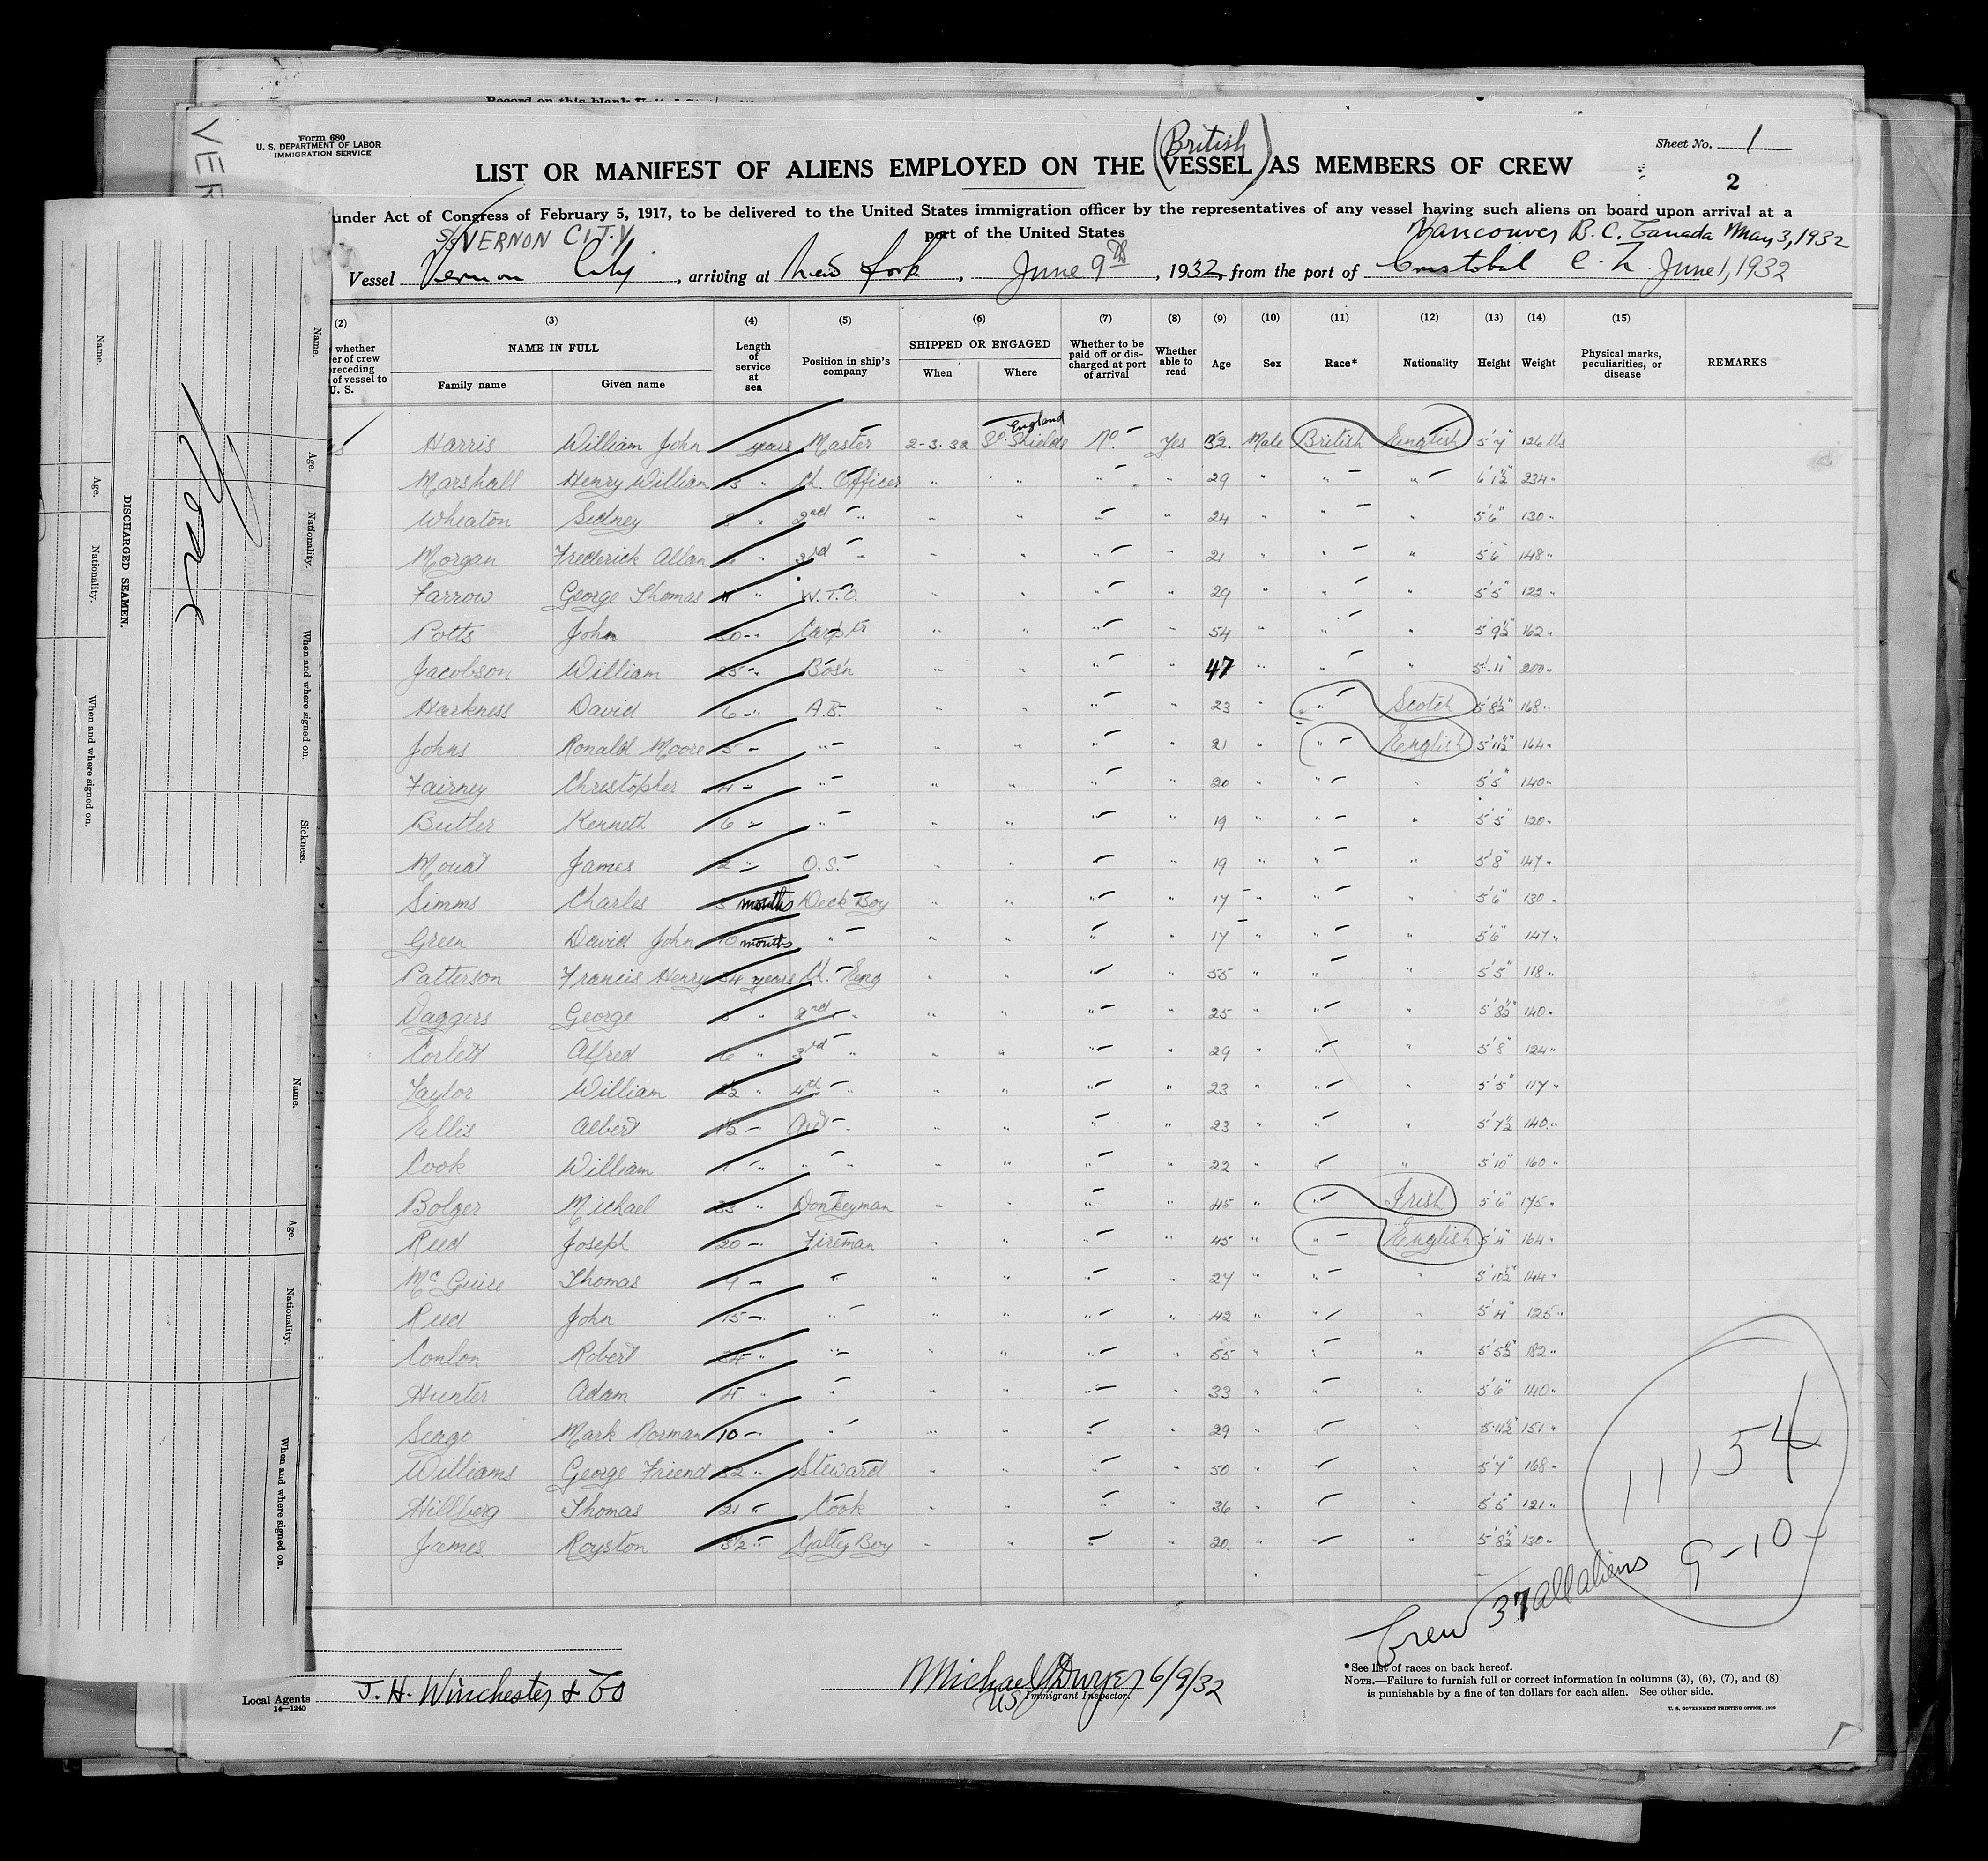 Record on this blank
VER
Form 680
U. S. DEPARTMENT OF LABOR
IMMIGRATION SERVICE
Sheet No. 1
(British)
LIST OR MANIFEST OF ALIENS EMPLOYED ON THE VESSEL AS MEMBERS OF CREW
2
under Act of Congress of February 5, 1917, to be delivered to the United States immigration officer by the representatives of any vessel having such aliens on board upon arrival at a
port of the United States
SS VERNON CITY
Vancouver B. C. Canada May 3, 1932
Vessel Vernon City, arriving at New York, June 9th, 1932, from the port of Cristobal C. Z. June 1, 1932
(2) (3) (4) (5) (6) (7) (8) (9) (10) (11) (12) (13) (14) (15)
whether
er of crew
preceding
of vessel to
U. S.
NAME IN FULL
Family name Given name
Length of service at sea
Position in ship's company
SHIPPED OR ENGAGED
When Where
Whether to be paid off or dis-charged at port of arrival
Whether able to read
Age Sex Race* Nationality Height Weight
Physical marks, peculiarities, or disease
REMARKS
England
Harris William John years Master 2-3-32 So. Shields No. Yes 32. Male British English 5'7" 126 lbs
Marshall Henry William " Ch. Officer " " " " 29 " " " 6'1½" 234 "
Wheaton Sidney " 2nd " " " " " 24 " " " 5'6" 130 "
Morgan Frederick Allan " 3rd " " " " " 21 " " " 5'6" 148 "
Farrow George Thomas " W.T.O. " " " " 29 " " " 5'5" 122 "
Potts John 30 " Carp'tr " " " " 54 " " " 5'9½" 162 "
Jacobson William 25 " Bos'n " " " " 47 " " " 5'11" 200 "
Harkness David 6 " A.B. " " " " 23 " " Scotch 5'8½" 168 "
Johns Ronald Moore 5 " " " " " " 21 " " English 5'11½" 164 "
Fairney Christopher 4 " " " " " " 20 " " " 5'5" 140 "
Butler Kenneth 6 " " " " " " 19 " " " 5'5" 120 "
Mouat James 2 " O.S. " " " " 19 " " " 5'8" 147 "
Simms Charles months Deck Boy " " " " 17 " " " 5'6" 130 "
Green David John 10 months " " " " " 17 " " " 5'6" 147 "
Patterson Francis Henry 34 years Ch. Eng " " " " 55 " " " 5'5" 118 "
Daggers George " 2nd " " " " " 25 " " " 5'8½" 140 "
Corlett Alfred 6 " 3rd " " " " " 29 " " " 5'8" 124 "
Taylor William " 4th " " " " " 23 " " " 5'5" 117 "
Ellis Albert " " " " " " 23 " " " 5'7½ 140 "
Cook William " " " " " " " 22 " " " 5'10" 160 "
Bolger Michael 23 " Donkeyman " " " " 45 " " Irish 5'6" 175 "
Reed Joseph 20 " Fireman " " " " 45 " " English 5'4" 164 "
McGuire Thomas 9 " " " " " " 27 " " " 5'10½" 144 "
Reed John 15 " " " " " " 42 " " " 5'4" 125 "
Conlon Robert 34 " " " " " " 55 " " " 5'5½" 182 "
Hunter Adam 4 " " " " " " 33 " " " 5'6" 140 "
Seago Mark Norman 10 " " " " " " 29 " " " 5'11½" 151 "
Williams George Friend 32 " Steward " " " " 50 " " " 5'7" 168 "
Hillberg Thomas 21 " Cook " " " " 36 " " " 5'5" 121 "
James Royston 3½ " Galley Boy " " " " 20 " " " 5'8½" 130 "
11154
9-10
Crew 37 all aliens
*See list of races on back hereof.
NOTE.—Failure to furnish full or correct information in columns (3), (6), (7), and (8)
is punishable by a fine of ten dollars for each alien. See other side.
U. S. GOVERNMENT PRINTING OFFICE. 1929
Local Agents J. H. Winchester & Co
14—1240
Michael J Dwyer 6/9/32
US Immigrant Inspector.
DISCHARGED SEAMEN.
Name. Age. Nationality. When and where signed on.
Name. Age. Nationality. When and where signed on. Sickness.
Name. Age. Nationality. When and where signed on.